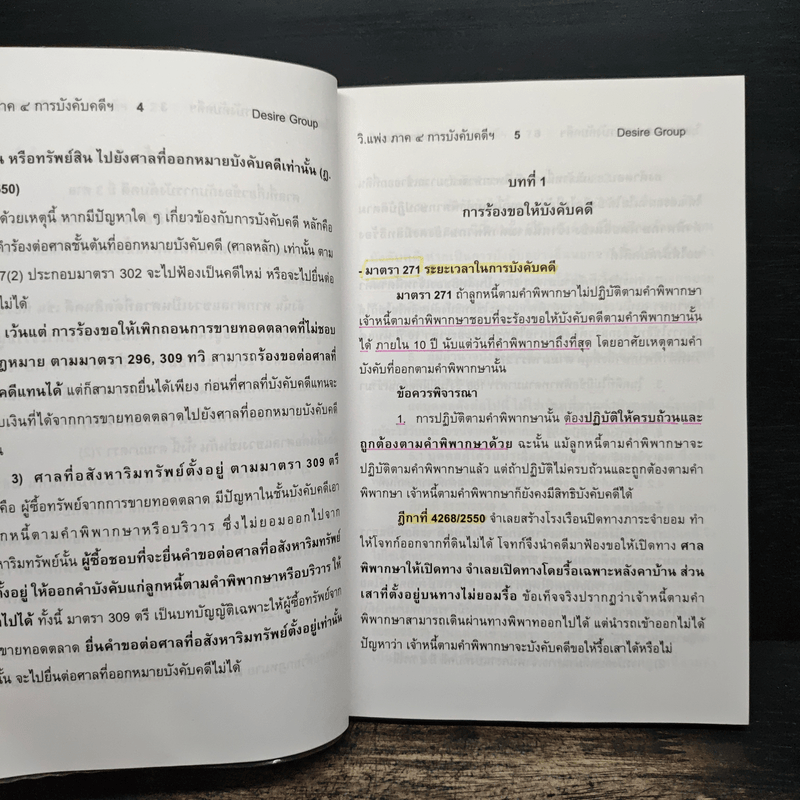 าค ๔ การบังคับคดีฯ 4 Desire Group
หรือทรัพย์สิน ไปยังศาลที่ออกหมายบังคับคดีเท่านั้น (ฎ.
50)
ด้วยเหตุนี้ หากมีปัญหาใด ๆ เกี่ยวข้องกับการบังคับคดี หลักคือ
คำร้องต่อศาลชั้นต้นที่ออกหมายบังคับคดี (ศาลหลัก) เท่านั้น ตาม
7(2) ประกอบมาตรา 302 จะไปฟ้องเป็นคดีใหม่ หรือจะไปยื่นต่อ
ไม่ได้
เว้นแต่ การร้องขอให้เพิกถอนการขายทอดตลาดที่ไม่ชอบ
ฎหมาย ตามมาตรา 296, 309 ทวิ สามารถร้องขอต่อศาลที่
คดีแทนได้ แต่ก็สามารถยื่นได้เพียง ก่อนที่ศาลที่บังคับคดีแทนจะ
บเงินที่ได้จากการขายทอดตลาดไปยังศาลที่ออกหมายบังคับคดี
3) ศาลที่อสังหาริมทรัพย์ตั้งอยู่ ตามมาตรา 309 ตรี
คือ ผู้ซื้อทรัพย์จากการขายทอดตลาด มีปัญหาในชั้นบังคับคดีเอา
ูกหนี้ตามคำพิพากษาหรือบริวาร ซึ่งไม่ยอมออกไปจาก
หาริมทรัพย์นั้น ผู้ซื้อชอบที่จะยื่นคำขอต่อศาลที่อสังหาริมทรัพย์
ตั้งอยู่ ให้ออกคำบังคับแก่ลูกหนี้ตามคำพิพากษาหรือบริวาร ให้
าไปได้ ทั้งนี้ มาตรา 309 ตรี เป็นบทบัญญัติเฉพาะให้ผู้ซื้อทรัพย์จาก
ขายทอดตลาด ยื่นคำขอต่อศาลที่อสังหาริมทรัพย์ตั้งอยู่เท่านั้น
ั้น จะไปยื่นต่อศาลที่ออกหมายบังคับคดีไม่ได้
วิ.แพ่ง ภาค ๔ การบังคับคดีฯ 5 Desire Group
บทที่ 1
การร้องขอให้บังคับคดี
- มาตรา 271 ระยะเวลาในการบังคับคดี
มาตรา 271 ถ้าลูกหนี้ตามคำพิพากษาไม่ปฏิบัติตามคำพิพากษา
เจ้าหนี้ตามคำพิพากษาชอบที่จะร้องขอให้บังคับคดีตามคำพิพากษานั้น
ได้ ภายใน 10 ปี นับแต่วันที่คำพิพากษาถึงที่สุด โดยอาศัยเหตุตามคำ
บังคับที่ออกตามคำพิพากษานั้น
ข้อควรพิจารณา
1. การปฏิบัติตามคำพิพากษานั้น ต้องปฏิบัติให้ครบถ้วนและ
ถูกต้องตามคำพิพากษาด้วย ฉะนั้น แม้ลูกหนี้ตามคำพิพากษาจะ
ปฏิบัติตามคำพิพากษาแล้ว แต่ถ้าปฏิบัติไม่ครบถ้วนและถูกต้องตามคำ
พิพากษา เจ้าหนี้ตามคำพิพากษาก็ยังคงมีสิทธิบังคับคดีได้
ฎีกาที่ 4268/2550 จำเลยสร้างโรงเรือนปิดทางภาระจำยอม ทำ
ให้โจทก์ออกจากที่ดินไม่ได้ โจทก์จึงนำคดีมาฟ้องขอให้เปิดทาง ศาล
พิพากษาให้เปิดทาง จำเลยเปิดทางโดยรื้อเฉพาะหลังคาบ้าน ส่วน
เสาที่ตั้งอยู่บนทางไม่ยอมรื้อ ข้อเท็จจริงปรากฏว่าเจ้าหนี้ตามคำ
พิพากษาสามารถเดินผ่านทางพิพาทออกไปได้ แต่นำรถเข้าออกไม่ได้
ปัญหาว่า เจ้าหนี้ตามคำพิพากษาจะบังคับคดีขอให้รื้อเสาได้หรือไม่